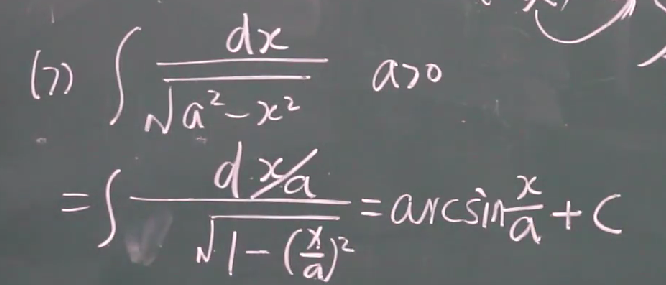 (7) ∫ dx/√(a²-x²) a>0
= ∫ d x/a / √(1-(x/a)²) = arcsin x/a + C